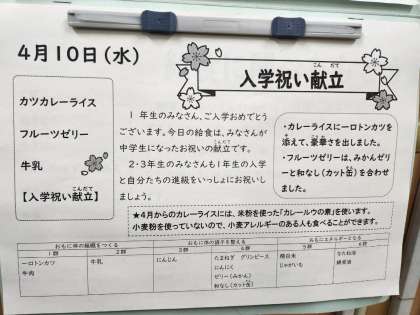 4月10日(水)
入学祝い献立
こんだて
カツカレーライス
フルーツゼリー
牛乳
【入学祝い献立】
こんだて
1年生のみなさん、ご入学おめでとう
ございます。今日の給食は、みなさんが
中学生になったお祝いの献立です。
2・3年生のみなさんも1年生の入学
と自分たちの進級をいっしょにお祝いし
ましょう。
・カレーライスに一口トンカツを
添えて、豪華さを出しました。
・フルーツゼリーは、みかんゼリー
と和なし(カット缶)を合わせ
ました。
★4月からのカレーライスには、米粉を使った「カレールウの素」を使います。
小麦粉を使っていないので、小麦アレルギーのある人も食べることができます。
おもに体の組織をつくる おもに体の調子を整える おもにエネルギーとなる
1群 2群 3群 4群 5群 6群
一口トンカツ 牛乳 にんじん たまねぎ グリンピース 精白米 なたね油
牛肉 にんにく じゃがいも
ゼリー(みかん)
和なし(カット缶)